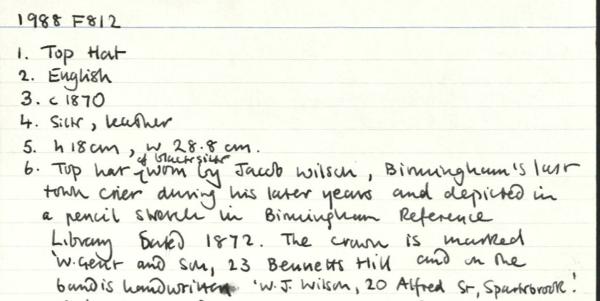 1988 F812
1. Top Hat
2. English
3. c 1870
4. Silk, leather
5. h 18cm, w 28.8 cm.
of black silk
6. Top hat worn by Jacob Wilson, Birmingham's last
town crier during his later years and depicted in
a pencil sketch in Birmingham Reference
Library dated 1872. The crown is marked
'W. Gent and Son, 23 Bennetts Hill and on the
band is handwritten 'W. J. Wilson, 20 Alfred St, Sparkbrook!